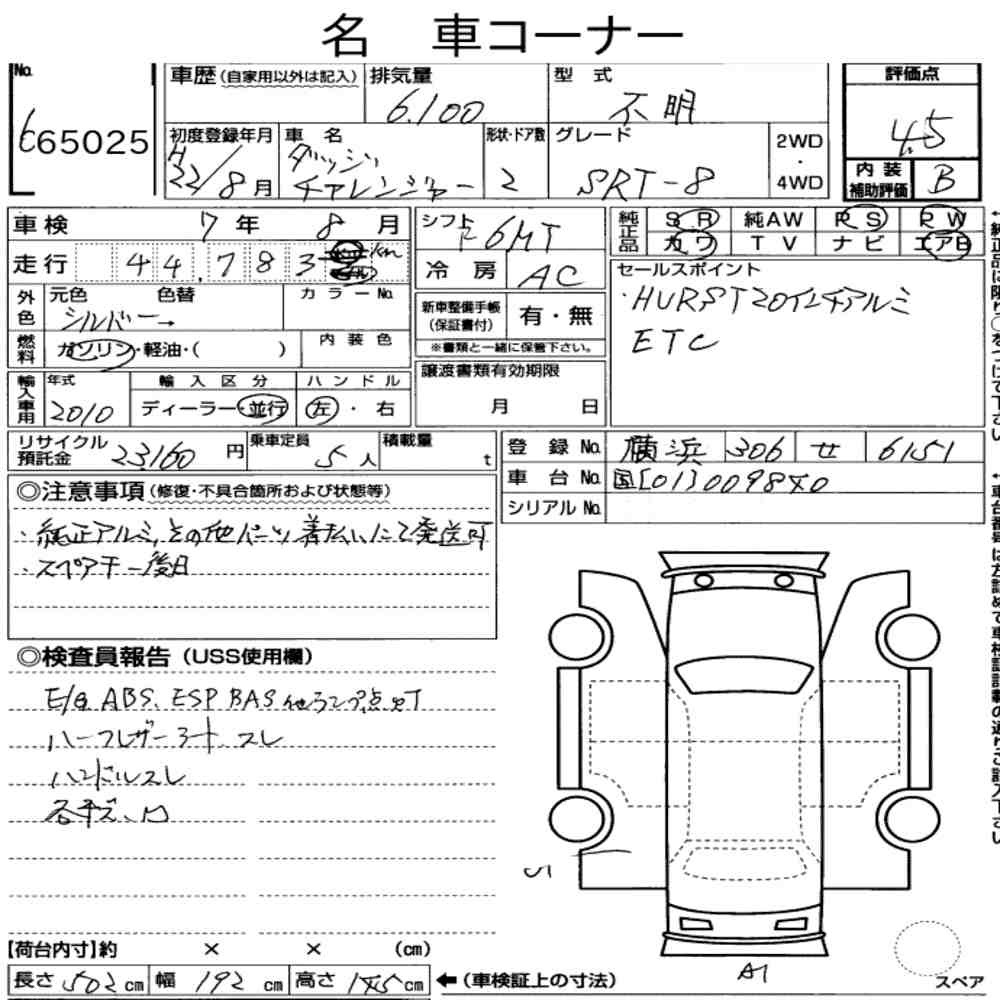 名 車コーナー
No.
65025
車歴(自家用以外は記入)
排気量
6.100
型 式
不明
評価点
4.5
初度登録年月
H
22/8月
車 名
ダッジ
チャレンジャー
形状・ドア数
2
グレード
SRT-8
2WD
・
4WD
内装
補助評価
B
車検 7年 8月
シフト
F6MT
純正品
SR 純AW PS PW
カワ TV ナビ エアB
走行 44,783
冷房 AC
セールスポイント
・HURST 20インチアルミ
ETC
外色
元色 色替
シルバー→
カラーNo.
新車整備手帳
(保証書付)
有・無
※書類と一緒に保管下さい。
燃料
ガソリン・軽油・( )
内装色
譲渡書類有効期限
月 日
輸入車用
年式
2010
輸入区分
ディーラー・並行
ハンドル
左・右
リサイクル
預託金
23,160円
乗車定員
5人
積載量
t
登録No. 横浜 306 せ 6151
車台No. 国[01]009840
シリアルNo.
◎注意事項(修復・不具合箇所および状態等)
・純正アルミ,その他パーツ着払いにて発送可
・スペアキー後日
◎検査員報告(USS使用欄)
E/G ABS、ESP BAS 他ランプ点灯
ハーフレザーシート スレ
ハンドルスレ
各キズ、凹
S
A1
スペア
【荷台内寸】約 × × (cm)
長さ502cm 幅192cm 高さ145cm
←(車検証上の寸法)
←純正品に限り○をつけて下さい